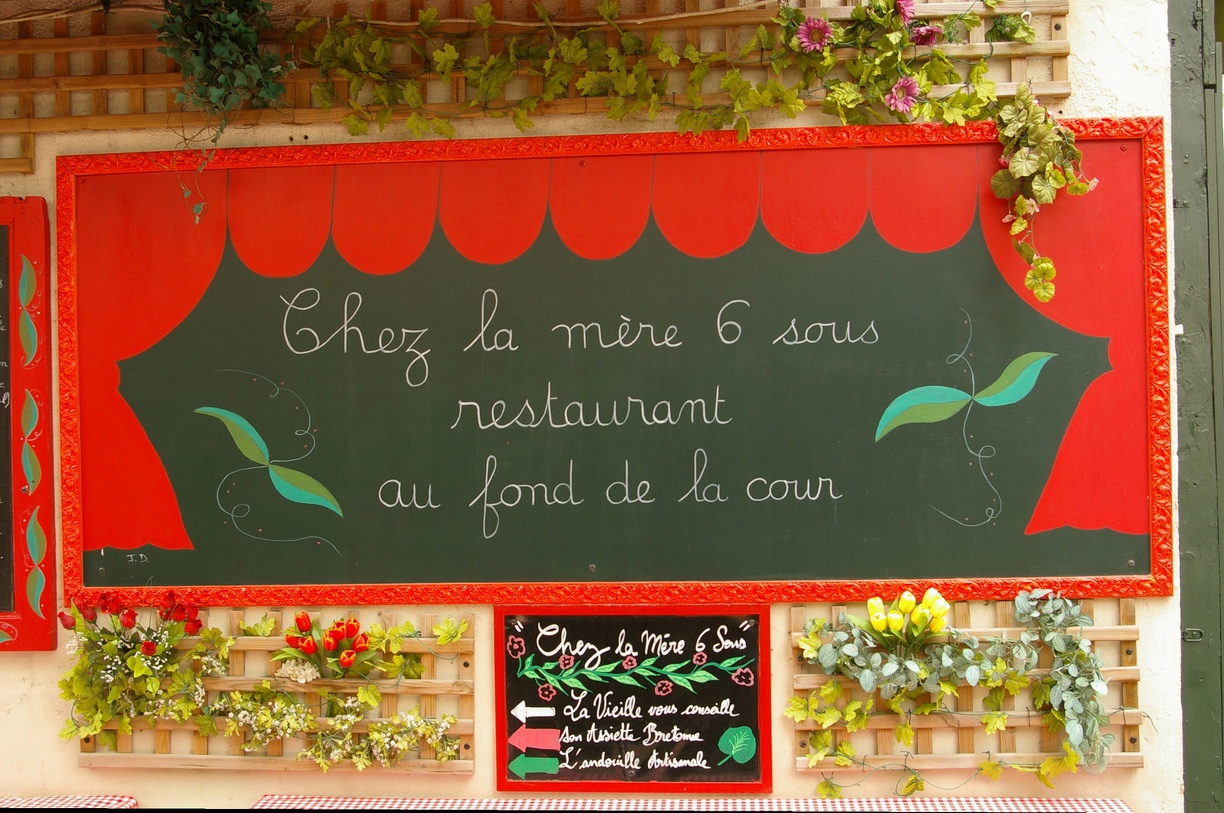 Chez la mère 6 sous
restaurant
au fond de la cour
J.D.
"Chez la Mère 6 Sous"
La Vieille vous conseille
son Assiette Bretonne
L'andouille Artisanale